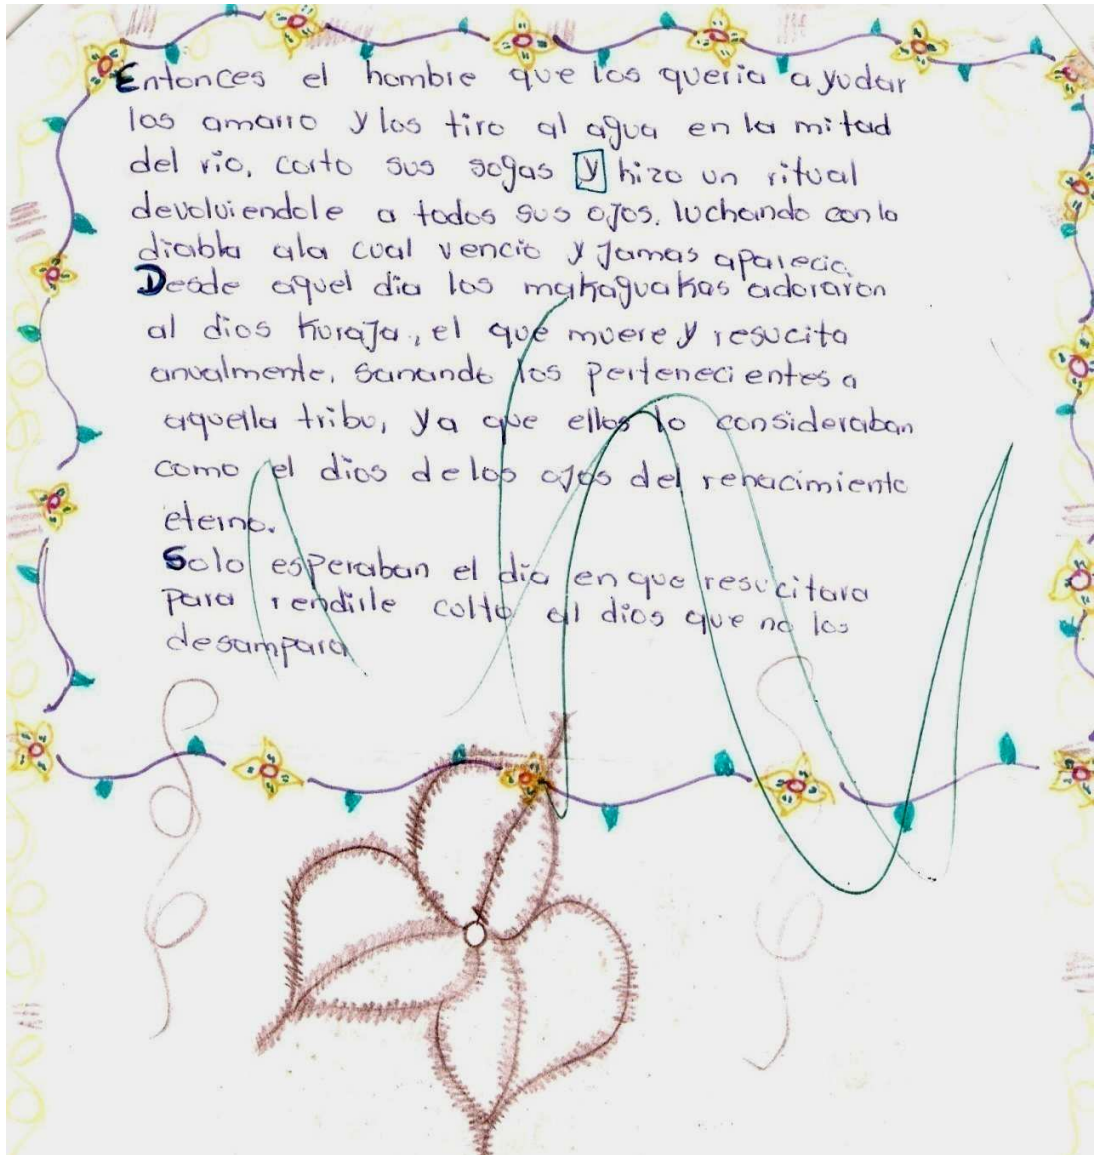 Entonces el hombre que los queria ayudar
los amarro y los tiro al agua en la mitad
del rio, corto sus sogas y hizo un ritual
devolviendole a todos sus ojos. luchando con la
diabla ala cual vencio y Jamas aparecio.
Desde aquel dia los makaguakas adoraron
al dios kuraJa, el que muere y resucita
anualmente, sanando los pertenecientes a
aquella tribu, ya que ellos lo consideraban
como el dios de los ojos del renacimiento
eterno.
Solo esperaban el dia en que resucitara
para rendirle culto al dios que no los
desampara